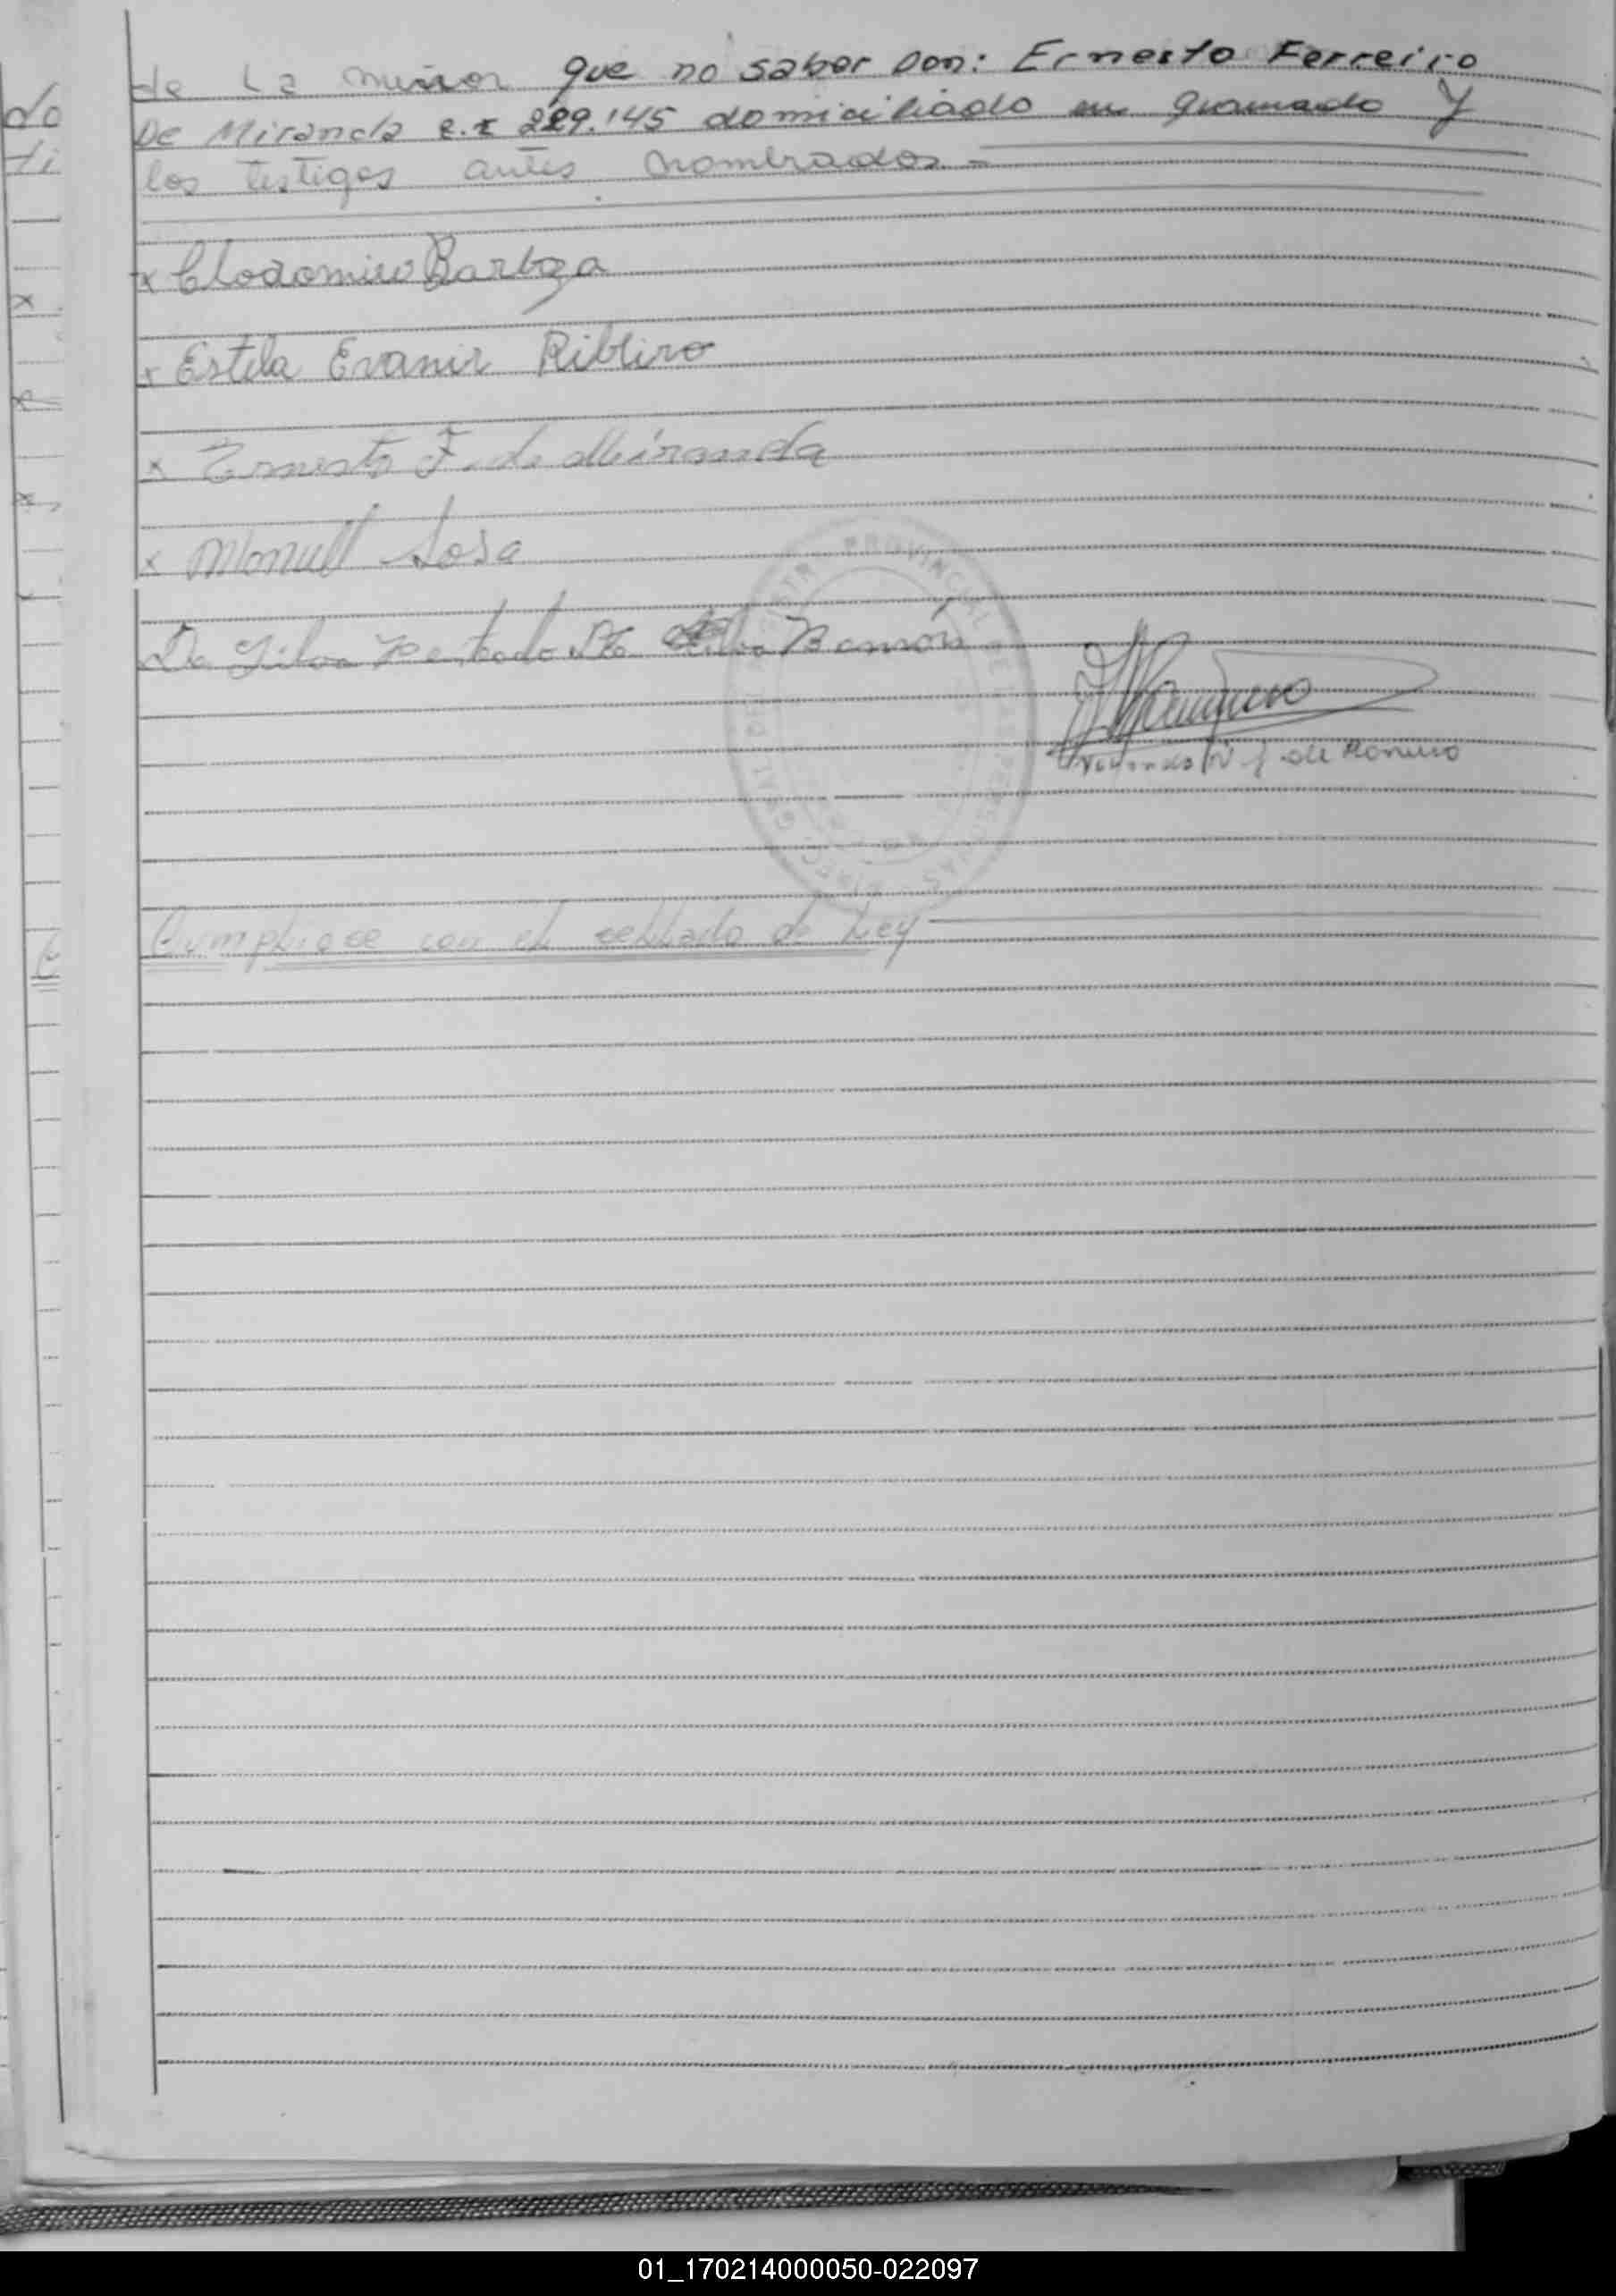 do
ti
de La menor que no saber Don: Ernesto Ferreiro
De Miranda C.I 229.145 domiciliado en gramado y
los testigos antes nombrados. -
x Clodomiro Barboza
x Estela Evanir Ribeiro
x Ernesto F. de Miranda
x Manuel Sosa
Da Silva Ramón
de Romero
Cumpliose con el sellado de Ley
01_170214000050-022097